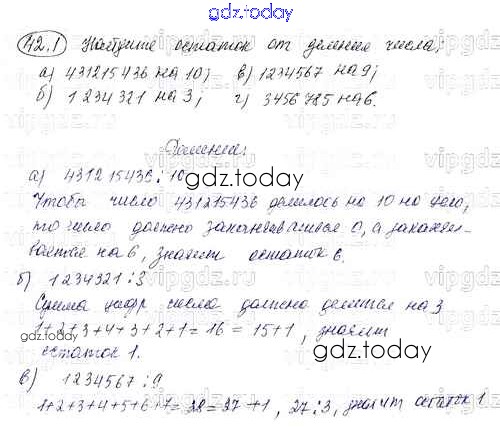 gdz.today
42.1 Найдите остаток от деления числа:
а) 431215436 на 10; в) 1234567 на 9;
б) 1234321 на 3; г) 3456785 на 6.
Решение:
а) 431215436 : 10
gdz.today
Чтобы число 431215436 делилось на 10 нацело,
то число должно заканчиваться 0, а заканчи-
вается на 6, значит остаток 6.
б) 1234321 : 3
Сумма цифр числа должна делится на 3
1+2+3+4+3+2+1=16=15+1, значит
gdz.today
остаток 1.
gdz.today
в) 1234567 : 9
1+2+3+4+5+6+7=28=27+1, 27:3, значит остаток 1